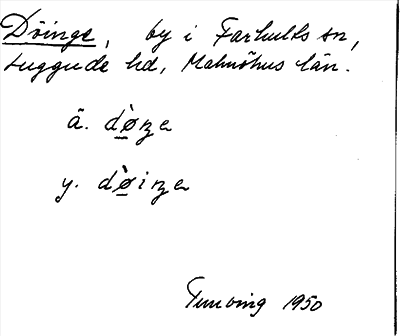 Döinge, by i Farhults sn,
Luggude hd, Malmöhus län.
ä. dø̠̀ŋe
y. dø̠̀iŋe
1950